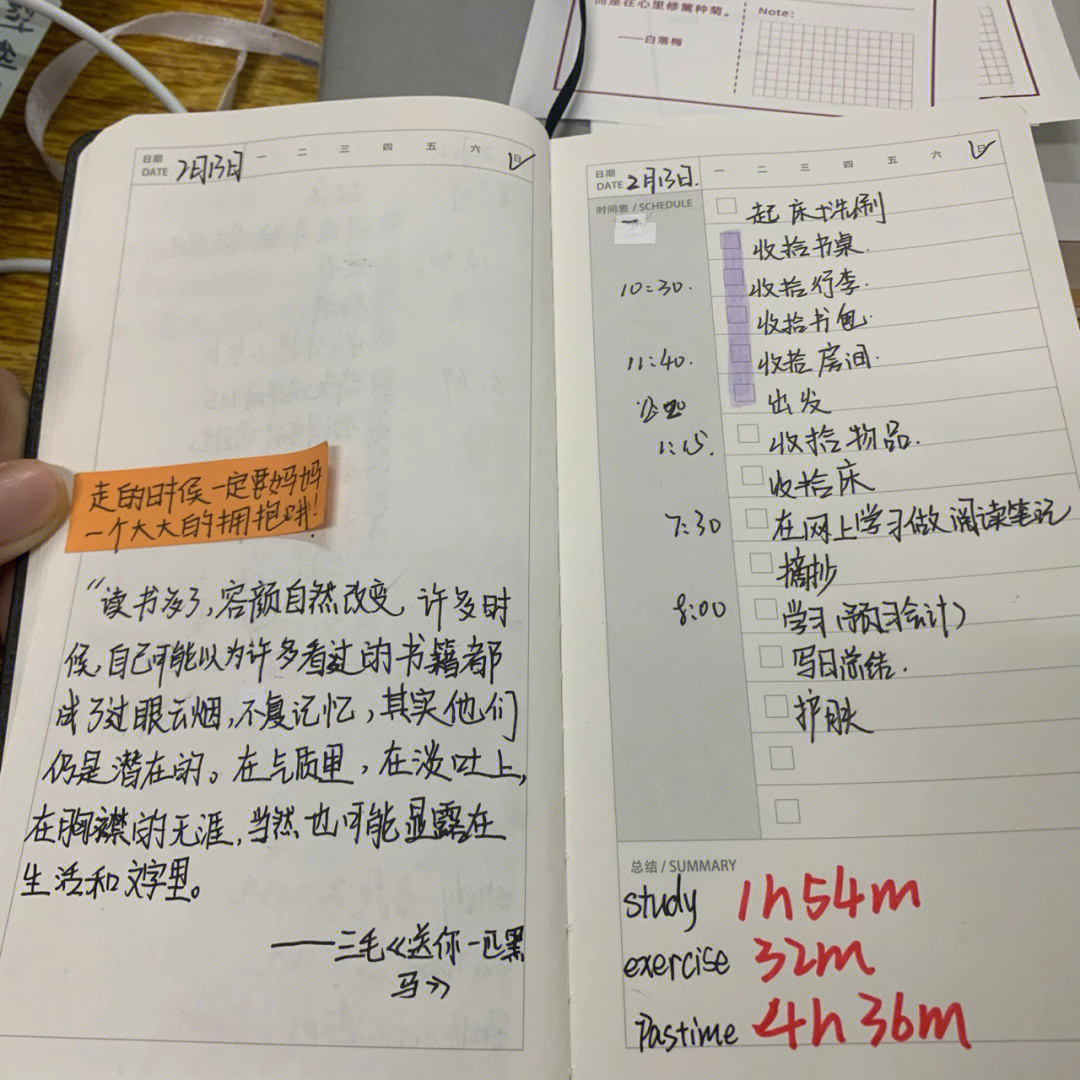 而是在心里修篱种菊。
——白落梅
Note:
日期
DATE 2月13日 一 二 三 四 五 六 日
走的时候一定要妈妈
一个大大的拥抱哦!
“读书多了,容颜自然改变,许多时
候,自己可能以为许多看过的书籍都
成了过眼云烟,不复记忆,其实他们
仍是潜在的。在气质里,在谈吐上,
在胸襟的无涯,当然也可能显露在
生活和文字里。
——三毛《送你一匹黑
马》
日期
DATE 2月13日. 一 二 三 四 五 六 日
时间表 / SCHEDULE
起床+洗刷
收拾书桌.
10:30. 收拾行李.
收拾书包.
11:40. 收拾房间.
出发
1:15. 收拾物品.
收拾床
7:30 在网上学习做阅读笔记
摘抄
8:00 学习(预习会计)
写日总结.
护肤
总结 / SUMMARY
study 1h54m
exercise 32m
Pastime 4h36m